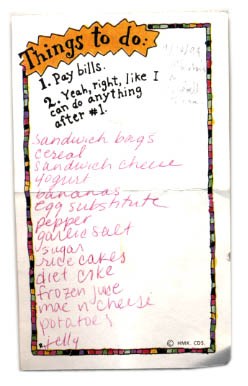 Things to do:
1. Pay bills.
2. Yeah, right, like I
can do anything
after #1.
sandwich bags
cereal
sandwich cheese
yogurt
bananas
egg substitute
pepper
garlic salt
sugar
rice cakes
diet coke
frozen juice
mac n cheese
potatoes
jelly
© HMK. CDS.